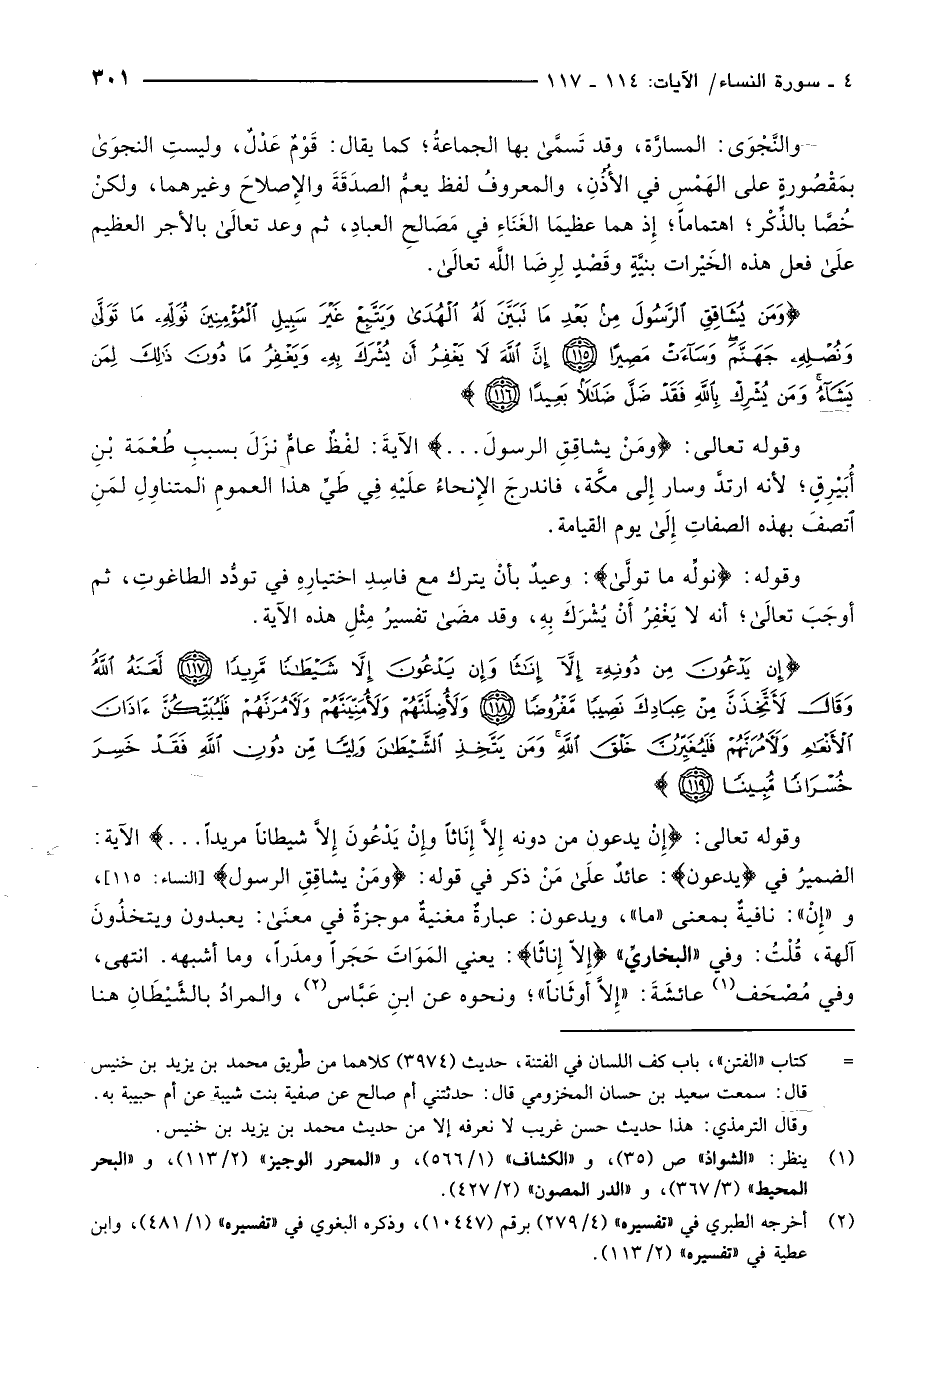 ٤ ـ سورة النساء/ الآيات: ١١٤ ـ ١١٧ ٣٠١
والنَّجْوَى: المسارَّة، وقد تَسمَّىٰ بها الجماعةُ؛ كما يقال: قَوْمٌ عَدْلٌ، وليستِ النجوَىٰ
بمَقْصُورةٍ على الهَمْسِ في الأُذُنِ، والمعروفُ لفظ يعمُّ الصدَقَةَ والإِصلاحَ وغيرهما، ولكنْ
خُصَّا بالذِّكْر؛ اهتماماً؛ إِذ هما عظيمَا الغَنَاءِ في مَصَالحِ العبادِ، ثم وعد تعالَىٰ بالأجر العظيم
علَىٰ فعل هذه الخَيْرات بنيَّةٍ وقَصْدٍ لِرِضَا اللَّه تعالَىٰ.
﴿وَمَن يُشَاقِقِ ٱلرَّسُولَ مِنۢ بَعْدِ مَا نَبَيَّنَ لَهُ ٱلْهُدَىٰ وَيَتَّبِعْ غَيْرَ سَبِيلِ ٱلْمُؤْمِنِينَ نُوَلِّهِۦ مَا تَوَلَّىٰ
وَنُصْلِهِۦ جَهَنَّمَۖ وَسَآءَتْ مَصِيرًا ﴿١١٥﴾ إِنَّ ٱللَّهَ لَا يَغْفِرُ أَن يُشْرَكَ بِهِۦ وَيَغْفِرُ مَا دُونَ ذَٰلِكَ لِمَن
يَشَآءُۚ وَمَن يُشْرِكْ بِٱللَّهِ فَقَدْ ضَلَّ ضَلَٰلًاۢ بَعِيدًا ﴿١١٦﴾ ﴾
وقوله تعالى: ﴿ومَنْ يشاقِقِ الرسولَ...﴾ الآيةَ: لفْظٌ عامٌّ نزَلَ بسببِ طُعْمَة بْنِ
أُبَيْرِقٍ؛ لأنه ارتدَّ وسار إلى مكَّة، فاندرجَ الإِنحاءُ علَيْهِ فِي طَيِّ هذا العمومِ المتناولِ لمَنِ
ٱتصفَ بهذه الصفاتِ إِلَىٰ يوم القيامة.
وقوله: ﴿نولِّه ما تولَّىٰ﴾: وعيدٌ بأنْ يترك مع فاسِدِ اختيارِهِ في تودُّد الطاغوتِ، ثم
أوجَبَ تعالَىٰ؛ أنه لا يَغْفِرُ أَنْ يُشْرَكَ بِهِ، وقد مضَىٰ تفسيرُ مِثْلِ هذه الآية.
﴿إِن يَدْعُونَ مِن دُونِهِۦٓ إِلَّآ إِنَٰثًا وَإِن يَدْعُونَ إِلَّا شَيْطَٰنًا مَّرِيدًا ﴿١١٧﴾ لَّعَنَهُ ٱللَّهُ
وَقَالَ لَأَتَّخِذَنَّ مِنْ عِبَادِكَ نَصِيبًا مَّفْرُوضًا ﴿١١٨﴾ وَلَأُضِلَّنَّهُمْ وَلَأُمَنِّيَنَّهُمْ وَلَءَامُرَنَّهُمْ فَلَيُبَتِّكُنَّ ءَاذَانَ
ٱلْأَنْعَٰمِ وَلَءَامُرَنَّهُمْ فَلَيُغَيِّرُنَّ خَلْقَ ٱللَّهِۚ وَمَن يَتَّخِذِ ٱلشَّيْطَٰنَ وَلِيًّا مِّن دُونِ ٱللَّهِ فَقَدْ خَسِرَ
خُسْرَانًا مُّبِينًا ﴿١١٩﴾ ﴾
وقوله تعالى: ﴿إِنْ يدعون من دونه إِلاَّ إِنَاثاً وإِنْ يَدْعُونَ إِلاَّ شيطاناً مريداً...﴾ الآية:
الضميرُ في ﴿يدعون﴾: عائدٌ علَىٰ مَنْ ذكر في قوله: ﴿ومَنْ يشاقِقِ الرسول﴾ [النساء: ١١٥]،
و «إِنْ»: نافيةٌ بمعنى «ما»، ويدعون: عبارةٌ مغنيةٌ موجزةٌ في معنَىٰ: يعبدون ويتخذُونَ
آلهة، قُلْتُ: وفي «البخاريِّ» ﴿إِلاَّ إِناثًا﴾: يعني المَوَاتَ حَجَراً ومدَراً، وما أشبهه. انتهى،
وفي مُصْحَف(١) عائشَةَ: «إِلاَّ أوثَاناً»؛ ونحوه عن ابنِ عَبَّاس(٢)، والمرادُ بالشَّيْطَانِ هنا
= كتاب «الفتن»، باب كف اللسان في الفتنة، حديث (٣٩٧٤) كلاهما من طريق محمد بن يزيد بن خنيس
قال: سمعت سعيد بن حسان المخزومي قال: حدثتني أم صالح عن صفية بنت شيبة عن أم حبيبة به.
وقال الترمذي: هذا حديث حسن غريب لا نعرفه إلا من حديث محمد بن يزيد بن خنيس.
(١) ينظر: «الشواذ» ص (٣٥)، و «الكشاف» (٥٦٦/١)، و «المحرر الوجيز» (١١٣/٢)، و «البحر
المحيط» (٣٦٧/٣)، و «الدر المصون» (٤٢٧/٢).
(٢) أخرجه الطبري في «تفسيره» (٢٧٩/٤) برقم (١٠٤٤٧)، وذكره البغوي في «تفسيره» (٤٨١/١)، وابن
عطية في «تفسيره» (١١٣/٢).